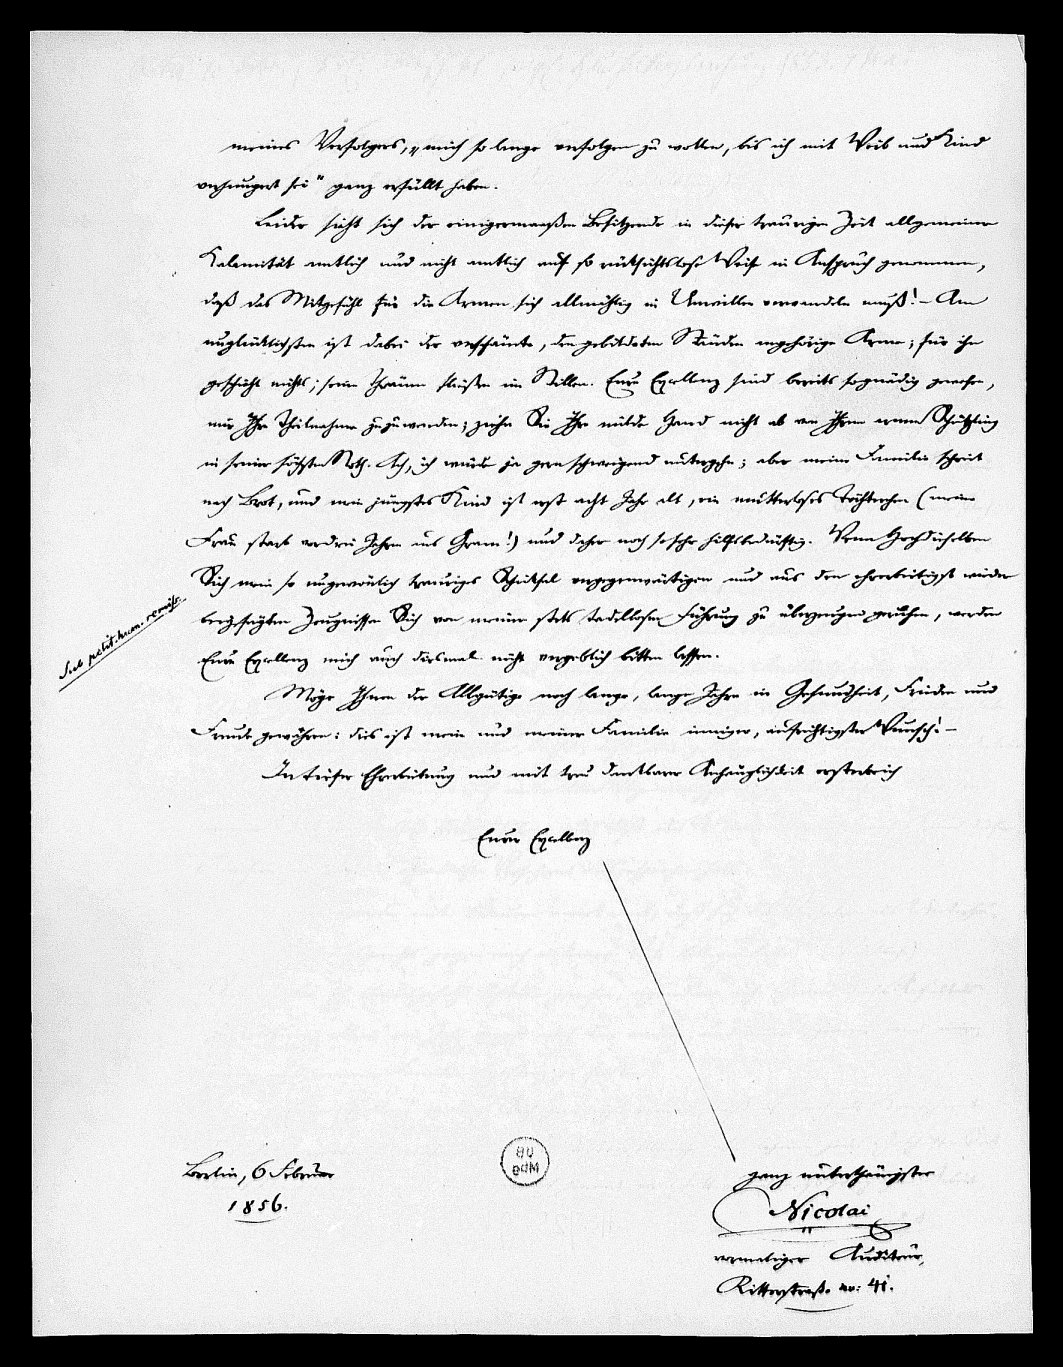 meines Verfolgers, „mich so lange verfolgen zu wollen, bis ich mit Weib und Kind
verhungert sei“ ganz erfüllt haben.
Leider sieht sich der einigermaaßen Besitzende in dieser traurigen Zeit allgemeiner
Kalamität amtlich und nicht amtlich auf so rücksichtslose Weise in Anspruch genommen,
daß das Mitgefühl für die Armen sich allmählig in Unwillen verwandeln muß! – Am
unglücklichsten ist dabei der verschämte, den gebildeten Ständen angehörige Arme; für ihn
geschieht nichts; seine Thränen fließen im Stillen. Eure Excellenz sind bereits so gnädig gewesen,
mir Ihre Theilnahme zuzuwenden; ziehen Sie Ihre milde Hand nicht ab von Ihrem armen Schützling
in seiner höchsten Noth. Ach, ich würde ja gern schweigend untergehn; aber meine Familie schreit
nach Brot, und mein jüngstes Kind ist erst acht Jahr alt, ein mutterloses Töchterchen (meine
Frau starb vor drei Jahren aus Gram!) und daher noch so sehr hilfsbedürftig. Wenn Hochdieselben
Sich mein so ungewönlich trauriges Schicksal vergegenwärtigen und aus den ehrerbietigst wieder
beigefügten Zeugnissen Sich von meiner stets tadellosen Führung zu überzeugen geruhen, werden
Eure Excellenz mich auch diesmal nicht vergeblich bitten lassen.
Sub petit. hum. remiss.
Möge Ihnen der Allgütige noch lange, lange Jahre in Gesundheit, Frieden und
Freude gewähren: dies ist mein und meiner Familie inniger, aufrichtigster Wunsch! –
In tiefer Ehrerbietung und mit treu dankbarer Anhänglichkeit ersterbe ich
Eurer Excellenz
ganz unterthänigster
Nicolai
vormaliger Auditeur,
Ritterstraße no: 41.
Berlin, 6 Februar
1856.